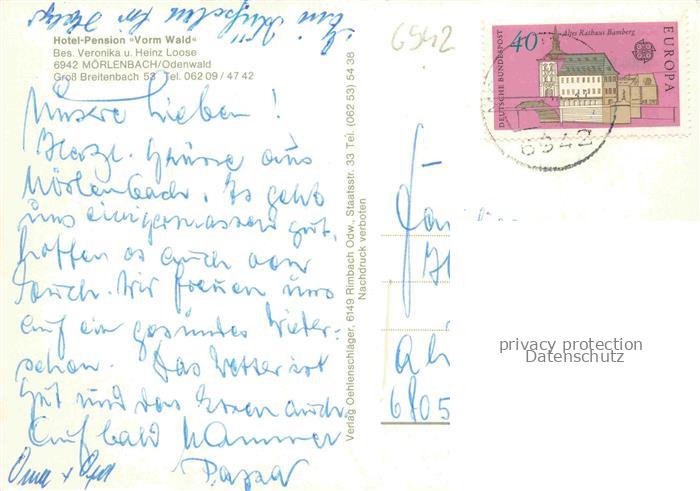 Ein Küsschen für
Hotel-Pension »Vorm Wald«
Bes. Veronika u. Heinz Loose
6942 MÖRLENBACH/Odenwald
Groß Breitenbach 53 Tel. 062 09 / 47 42
Unsere Lieben!
Herzl. Grüsse aus
Mörlenbach. Es geht
uns einigermassen gut,
hoffen es auch von
Euch. Wir freuen uns
auf ein gesundes Wieder-
sehen. Das Wetter ist
gut und das Essen auch.
Auf bald Mammer
Papa
Oma + Opa
Verlag Oehlenschläger, 6149 Rimbach Odw., Staatsstr. 33 Tel. (062 53) 54 38
Nachdruck verboten
6942
40
Altes Rathaus Bamberg
DEUTSCHE BUNDESPOST
EUROPA
6942
Fam
6805
privacy protection
Datenschutz